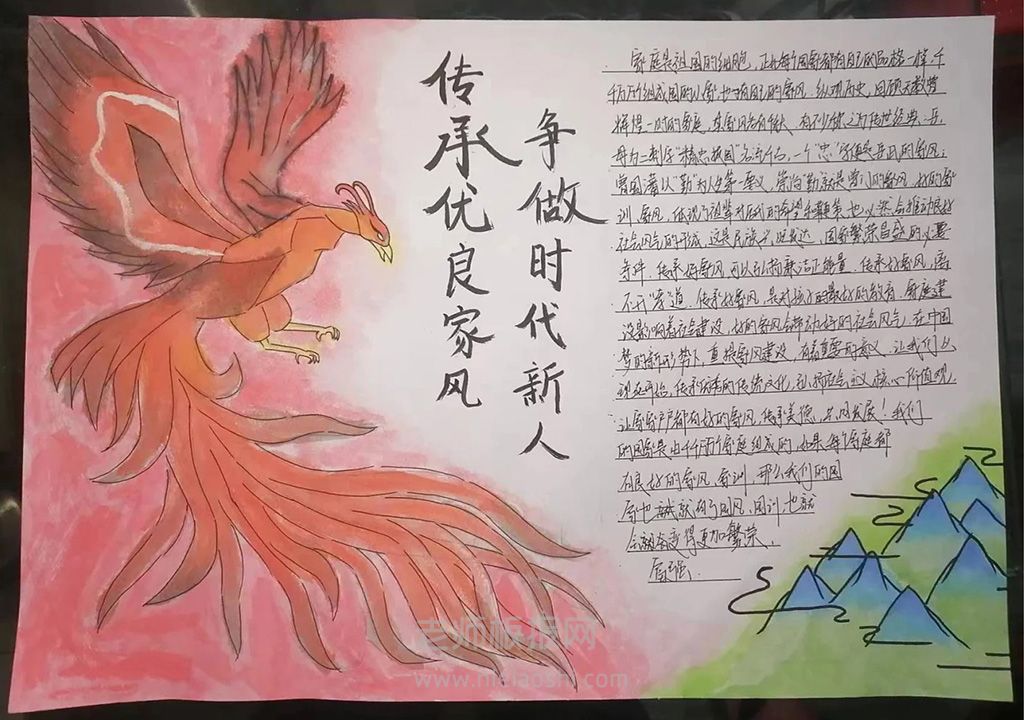 传承优良家风
争做时代新人
家庭是祖国的细胞，正如每个国家都有自己的品格一样，千
千万万个组成国的小家也有自己的家风。纵观历史，回顾
辉煌一时的家庭，其家风 有不少称之为传世经典。岳
母为二刺字“精忠报国”名流千古，一个“忠”字便是岳氏的家风；
曾国藩以“勤”为人生第一要义，勤 就是曾门的家风，好的家
训、家风，体现了祖辈对后代的希望 也以 推动良好
社会风气的形成，这是民族 国家繁荣昌盛的必要
条件。传承好家风，可以 正能量，传承好家风，离
不开“孝道”，传承好家风，是对孩子的最好的教育，家庭建
设影响着社会建设，好的家风会带动好的社会风气，在中国
梦的新形势下，重提家风建设，有着重要的意义，让我们从
现在开始，传承优秀的传统文化，弘扬社会主义核心价值观，
让家家户户都有好的家风，传承美德，共同发展！我们
的国家是由千千万万个家庭组成的，如果每个家庭都
有良好的家风、家训，那么我们的国
家也就 有了国风、国训，也就
会 变得更加繁荣、
富强。
老师板报网